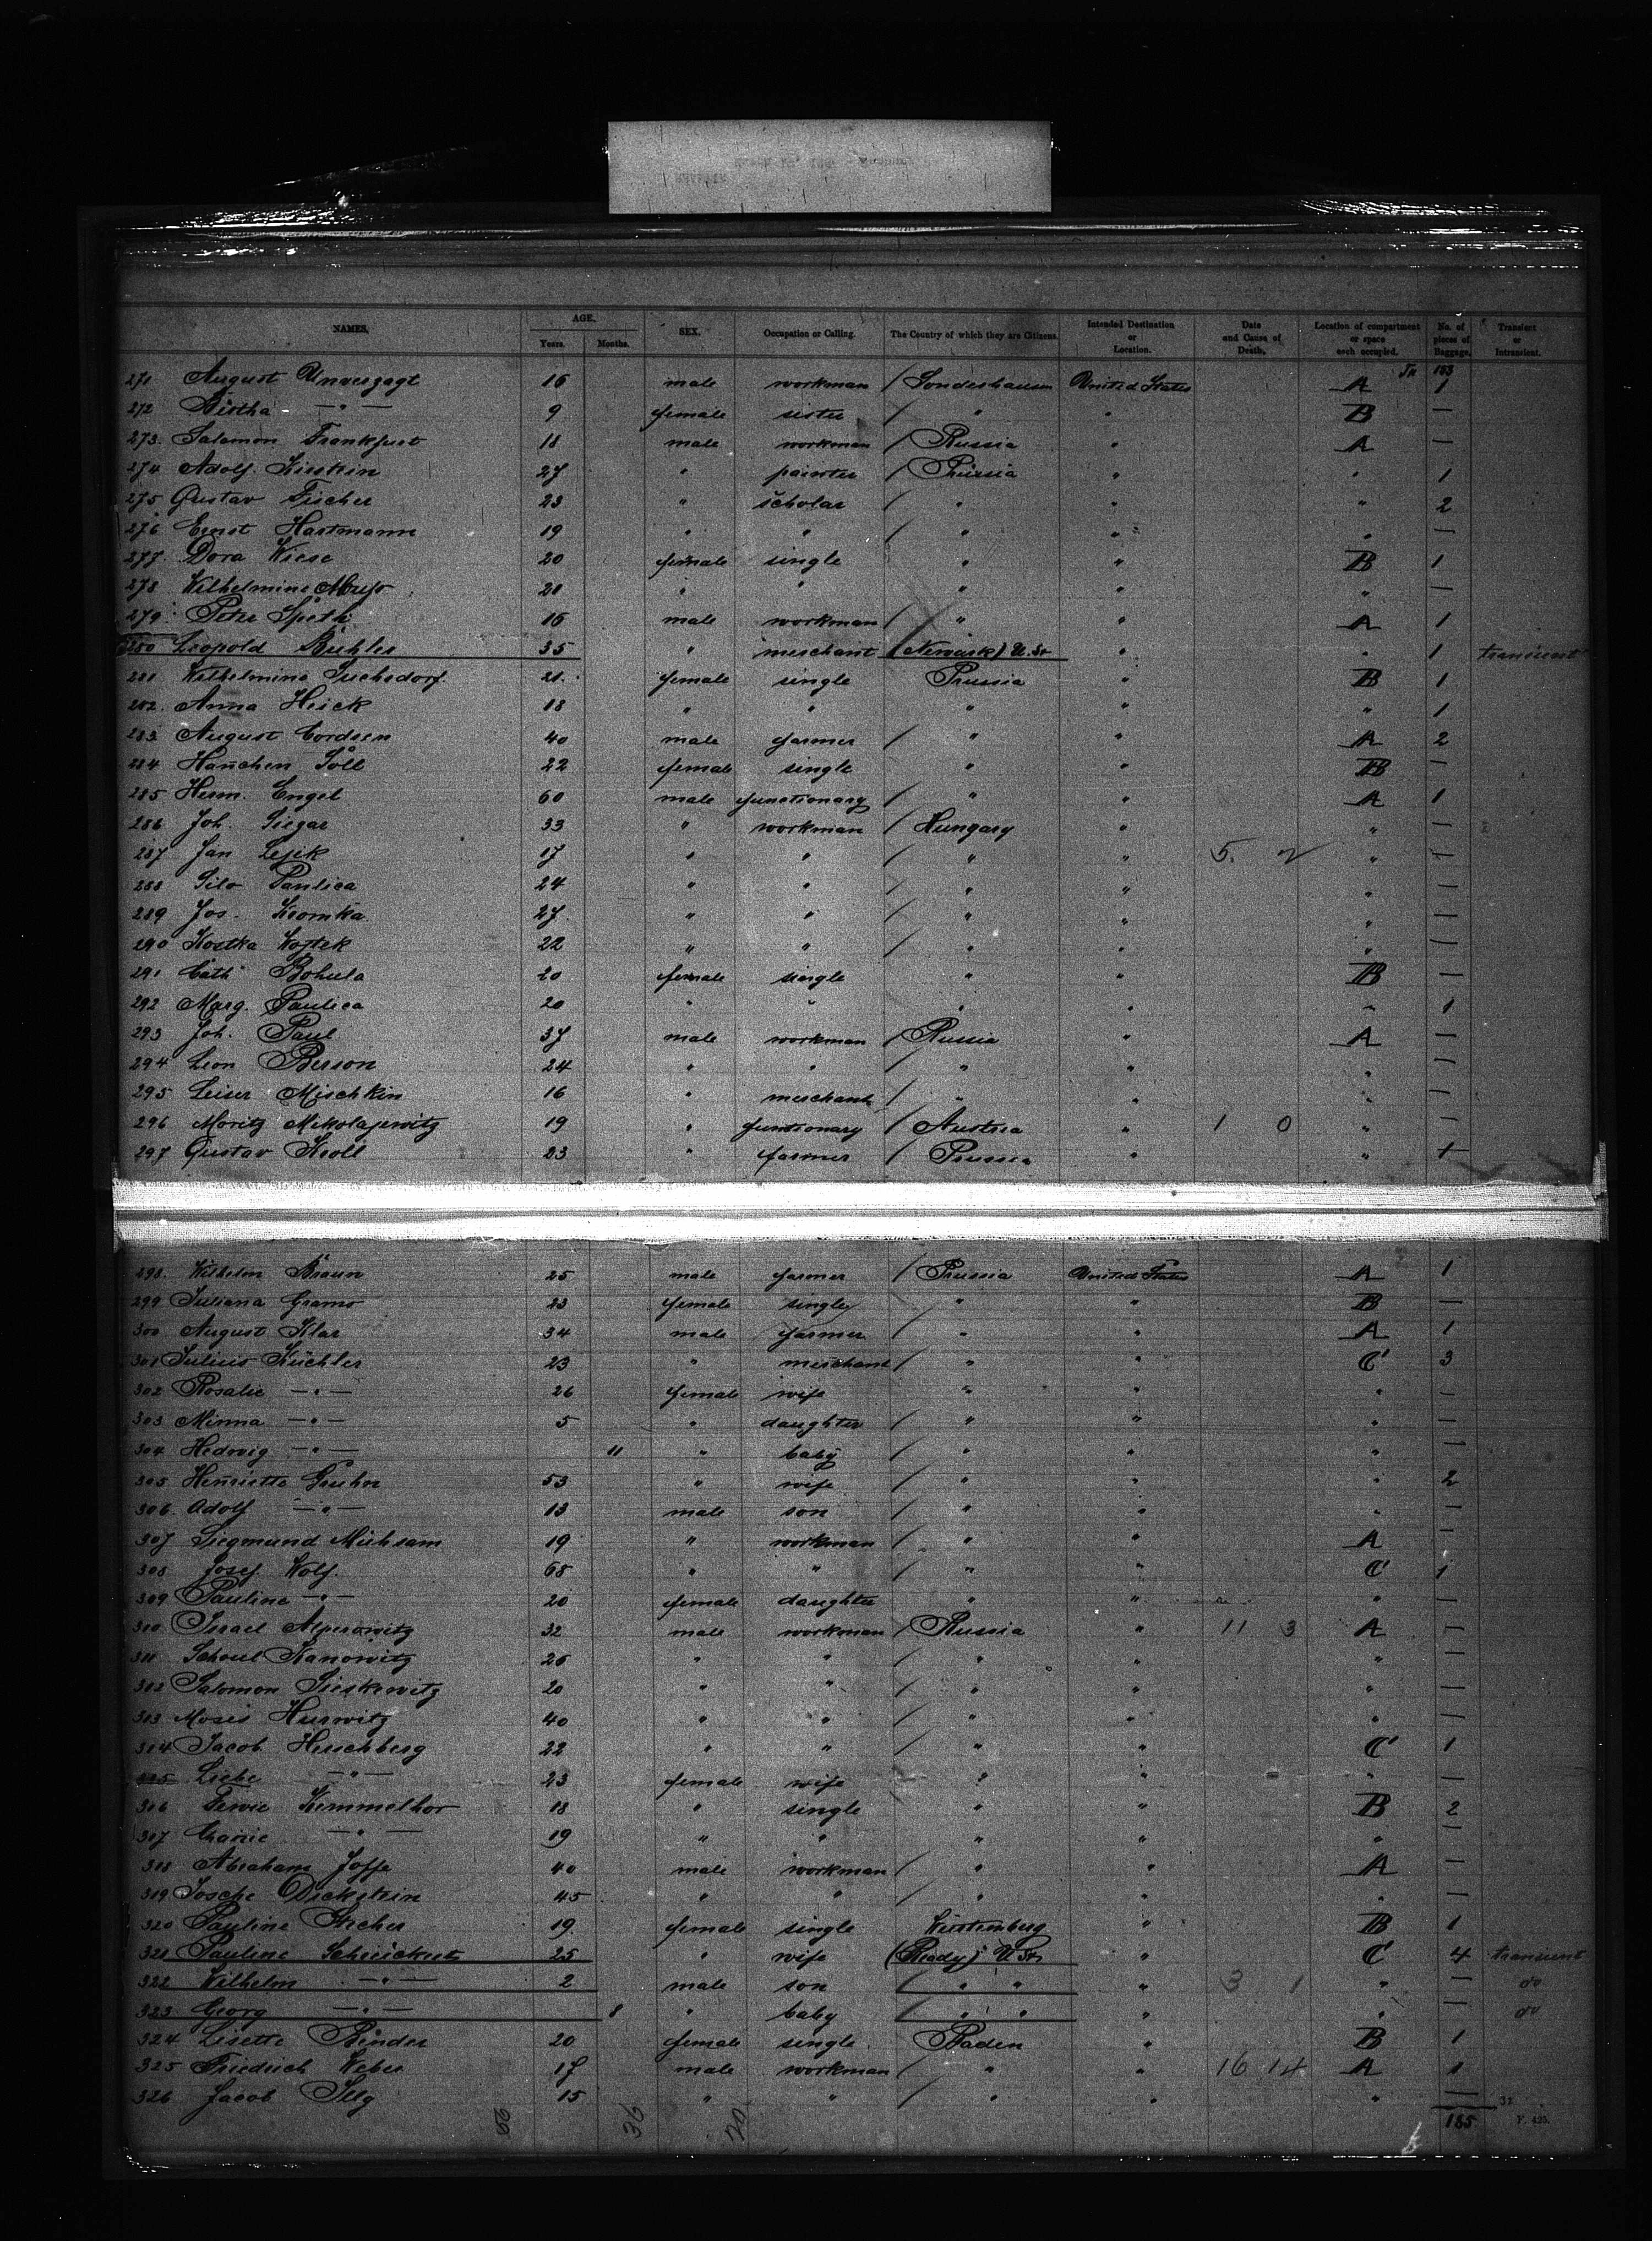 NAMES. AGE. Years. Months. SEX. Occupation or Calling. The Country of which they are Citizens. Intended Destination or Location. Date and Cause of Death. Location of compartment or space each occupied. No. of pieces of Baggage. Transient or Intransient.
153
271 August Unverzagt 16 male workman / Sondeshausen United States A 1
272 Bertha —"— 9 female sister / " " B —
273. Salamon Frankfurt 18 male workman / Russia " A —
274 Adolf. Kirstein 27 " painter / Prussia " " 1
275 Gustav Fischer 23 " scholar / " " " 2
276 Ernst Hartmann 19 " " / " " " —
277. Dora Wiese 20 female single " " B 1
278 Wilhelmine 21 " " " " " —
279 Peter Späth 16 male workman / " " A 1
280 Leopold Bühler 35 " merchant (Newark) U.St " " 1 transient
281 Wilhelmine Suchsdorf. 21. female single Prussia " B 1
282. Anna Heick 18 " " " " " 1
283 August Cordsen 40 male farmer / " " A 2
284 Hanchen Söll 22 female single " " B —
285 Herm. Engel 60 male functionary / " " A 1
286 Joh. Siegar 33 " workman / Hungary " " —
287 Jan Lesik 17 " " / " " 5. 2 " —
288 Silo Pantica 24 " " / " " " —
289 Jos. Kromka 27. " " / " " " —
290 Kostka Wojtek 22 " " / " " " —
291 Cath Bohula 20 female single " " B —
292 Marg. Paulica 20 " " " " " 1
293 Joh. Paul 37 male workman / Russia " A —
294 Leon Berson 24 " " / " " " —
295 Leiser Mischkin 16 " merchant / " " " —
296 Moritz Mikolajewitz 19 " funtionary / Austria " 1 0 " —
297 Gustav Kroll 23 " farmer / Prussia " " 1
298. Wilhelm Braun 25 male farmer / Prussia United States A 1
299 Juliana Grams 23 female single " " B —
300 August Klar 34 male farmer / " " A 1
301 Julius Küchler 23 " merchant / " " C 3
302 Rosalie —"— 26 female wife " " " —
303 Minna —"— 5 " daughter / " " " —
304 Hedwig —"— 11 " baby / " " " —
305 Henriette Gruhn 53 " wife / " " " 2
306. Adolf —"— 13 male son / " " " —
307 Siegmund Mühsam 19 " workman / " " A —
308 Josef Wolf. 68 " " / " " C 1
309 Pauline —"— 20 female daughter " " " —
310 Israel Alperowitz 32 male workman / Russia " 11 3 A —
311 Schoul Kanowitz 26 " " / " " " —
312 Salomon Sieskewitz 20 " " / " " " —
313 Moses Hurwitz 40 " " / " " " —
314 Jacob Herschberg 22 " " / " " C 1
315 Liebe —"— 23 female wife " " " —
316 Kemmelhor 18 " single " " B 2
317 Chanie —"— 19 " " " " " —
318 Abraham Joffe 40 male workman / " " A —
319 Josche Dickstein 45 " " / " " " —
320 Pauline 19. female single Würtemberg " B 1
321 Pauline 25 " wife (Ready) U.St. " C 4 transient
322 Wilhelm —"— 2 male son / " " " 3 1 " — do
323 Georg —"— 8 " baby / " " " " — do
324 Lisette Binder 20 female single. Baden " B 1
325 Friedrich Weber 17 male workman / " " 16 14 A 1
326 Jacob Illg 15 " " / " " " —
36
185
F. 425.